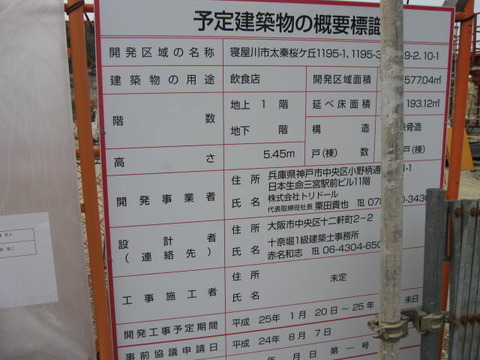 予定建築物の概要標識
開発区域の名称 寝屋川市太秦桜ケ丘1195-1、1195-3 9-2、10-1
建築物の用途 飲食店 開発区域面積 577.04㎡
階数 地上 1 階 延べ床面積 193.12㎡
地下 階 構造 骨造
高さ 5.45m 戸(棟)数
開発事業者 住所 兵庫県神戸市中央区小野柄通
日本生命三宮駅前ビル11階
氏名 株式会社トリドール
代表取締役社長 粟田貴也 TEL 078 3430
設計者(連絡先) 住所 大阪市中央区十二軒町2-2
氏名 十奈堀1級建築士事務所
赤名和志 TEL 06-4304-650
工事施工者 住所 未定
氏名
開発工事予定期間 平成 25年 1月 20日~25年 未日
事前協議申請日 平成 24年 8月 7日
年 月 日 第一号